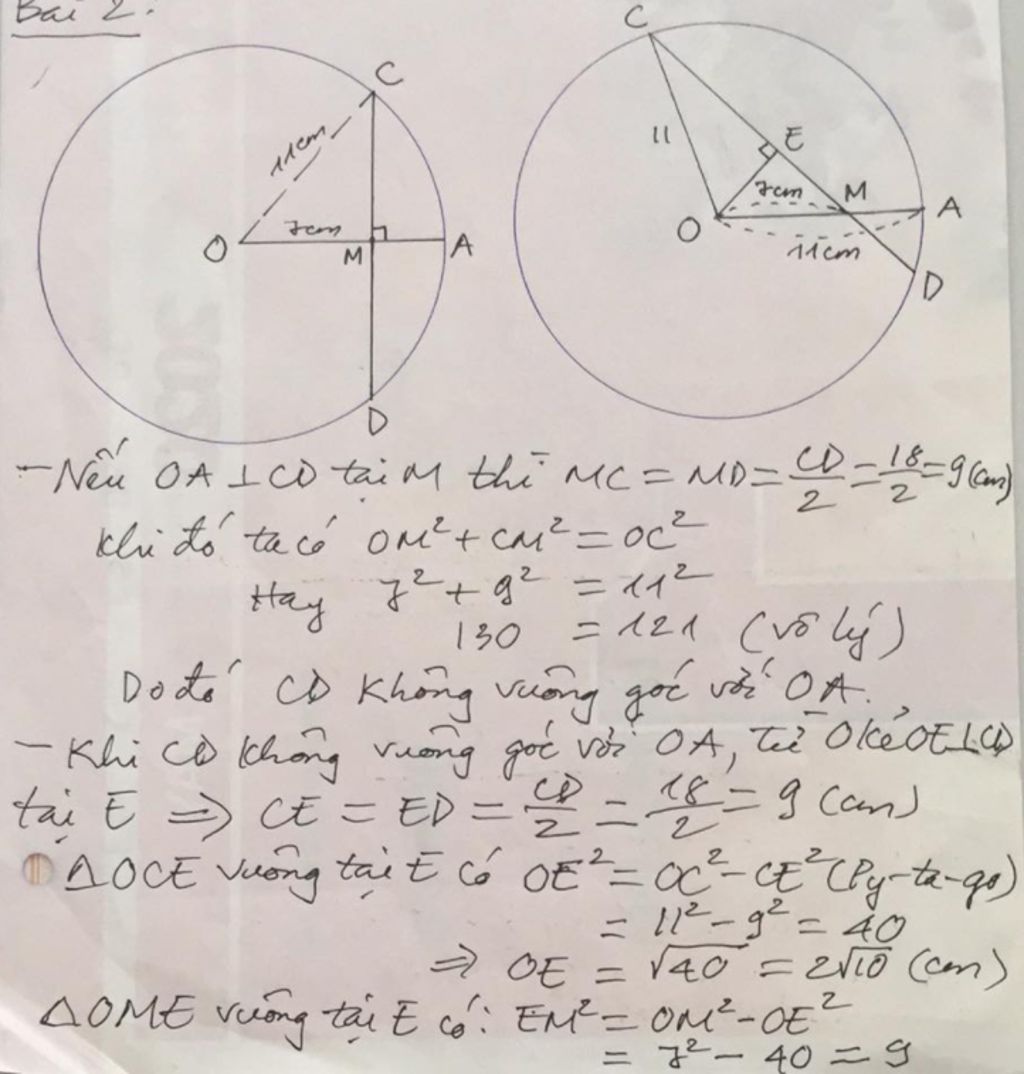 Bài 2:
C
11cm
7cm
O
M
A
D
C
11
E
7cm
M
A
O
11cm
D
- Nếu OA ⊥ CD tại M thì MC = MD = CD/2 = 18/2 = 9 (cm)
Khi đó ta có OM² + CM² = OC²
Hay 7² + 9² = 11²
130 = 121 (vô lý)
Do đó CD không vuông góc với OA.
- Khi CD không vuông góc với OA, từ O kẻ OE ⊥ CD
tại E ⇒ CE = ED = CD/2 = 18/2 = 9 (cm)
ΔOCE vuông tại E có OE² = OC² - CE² (Py-ta-go)
= 11² - 9² = 40
⇒ OE = √40 = 2√10 (cm)
ΔOME vuông tại E có: EM² = OM² - OE²
= 7² - 40 = 9